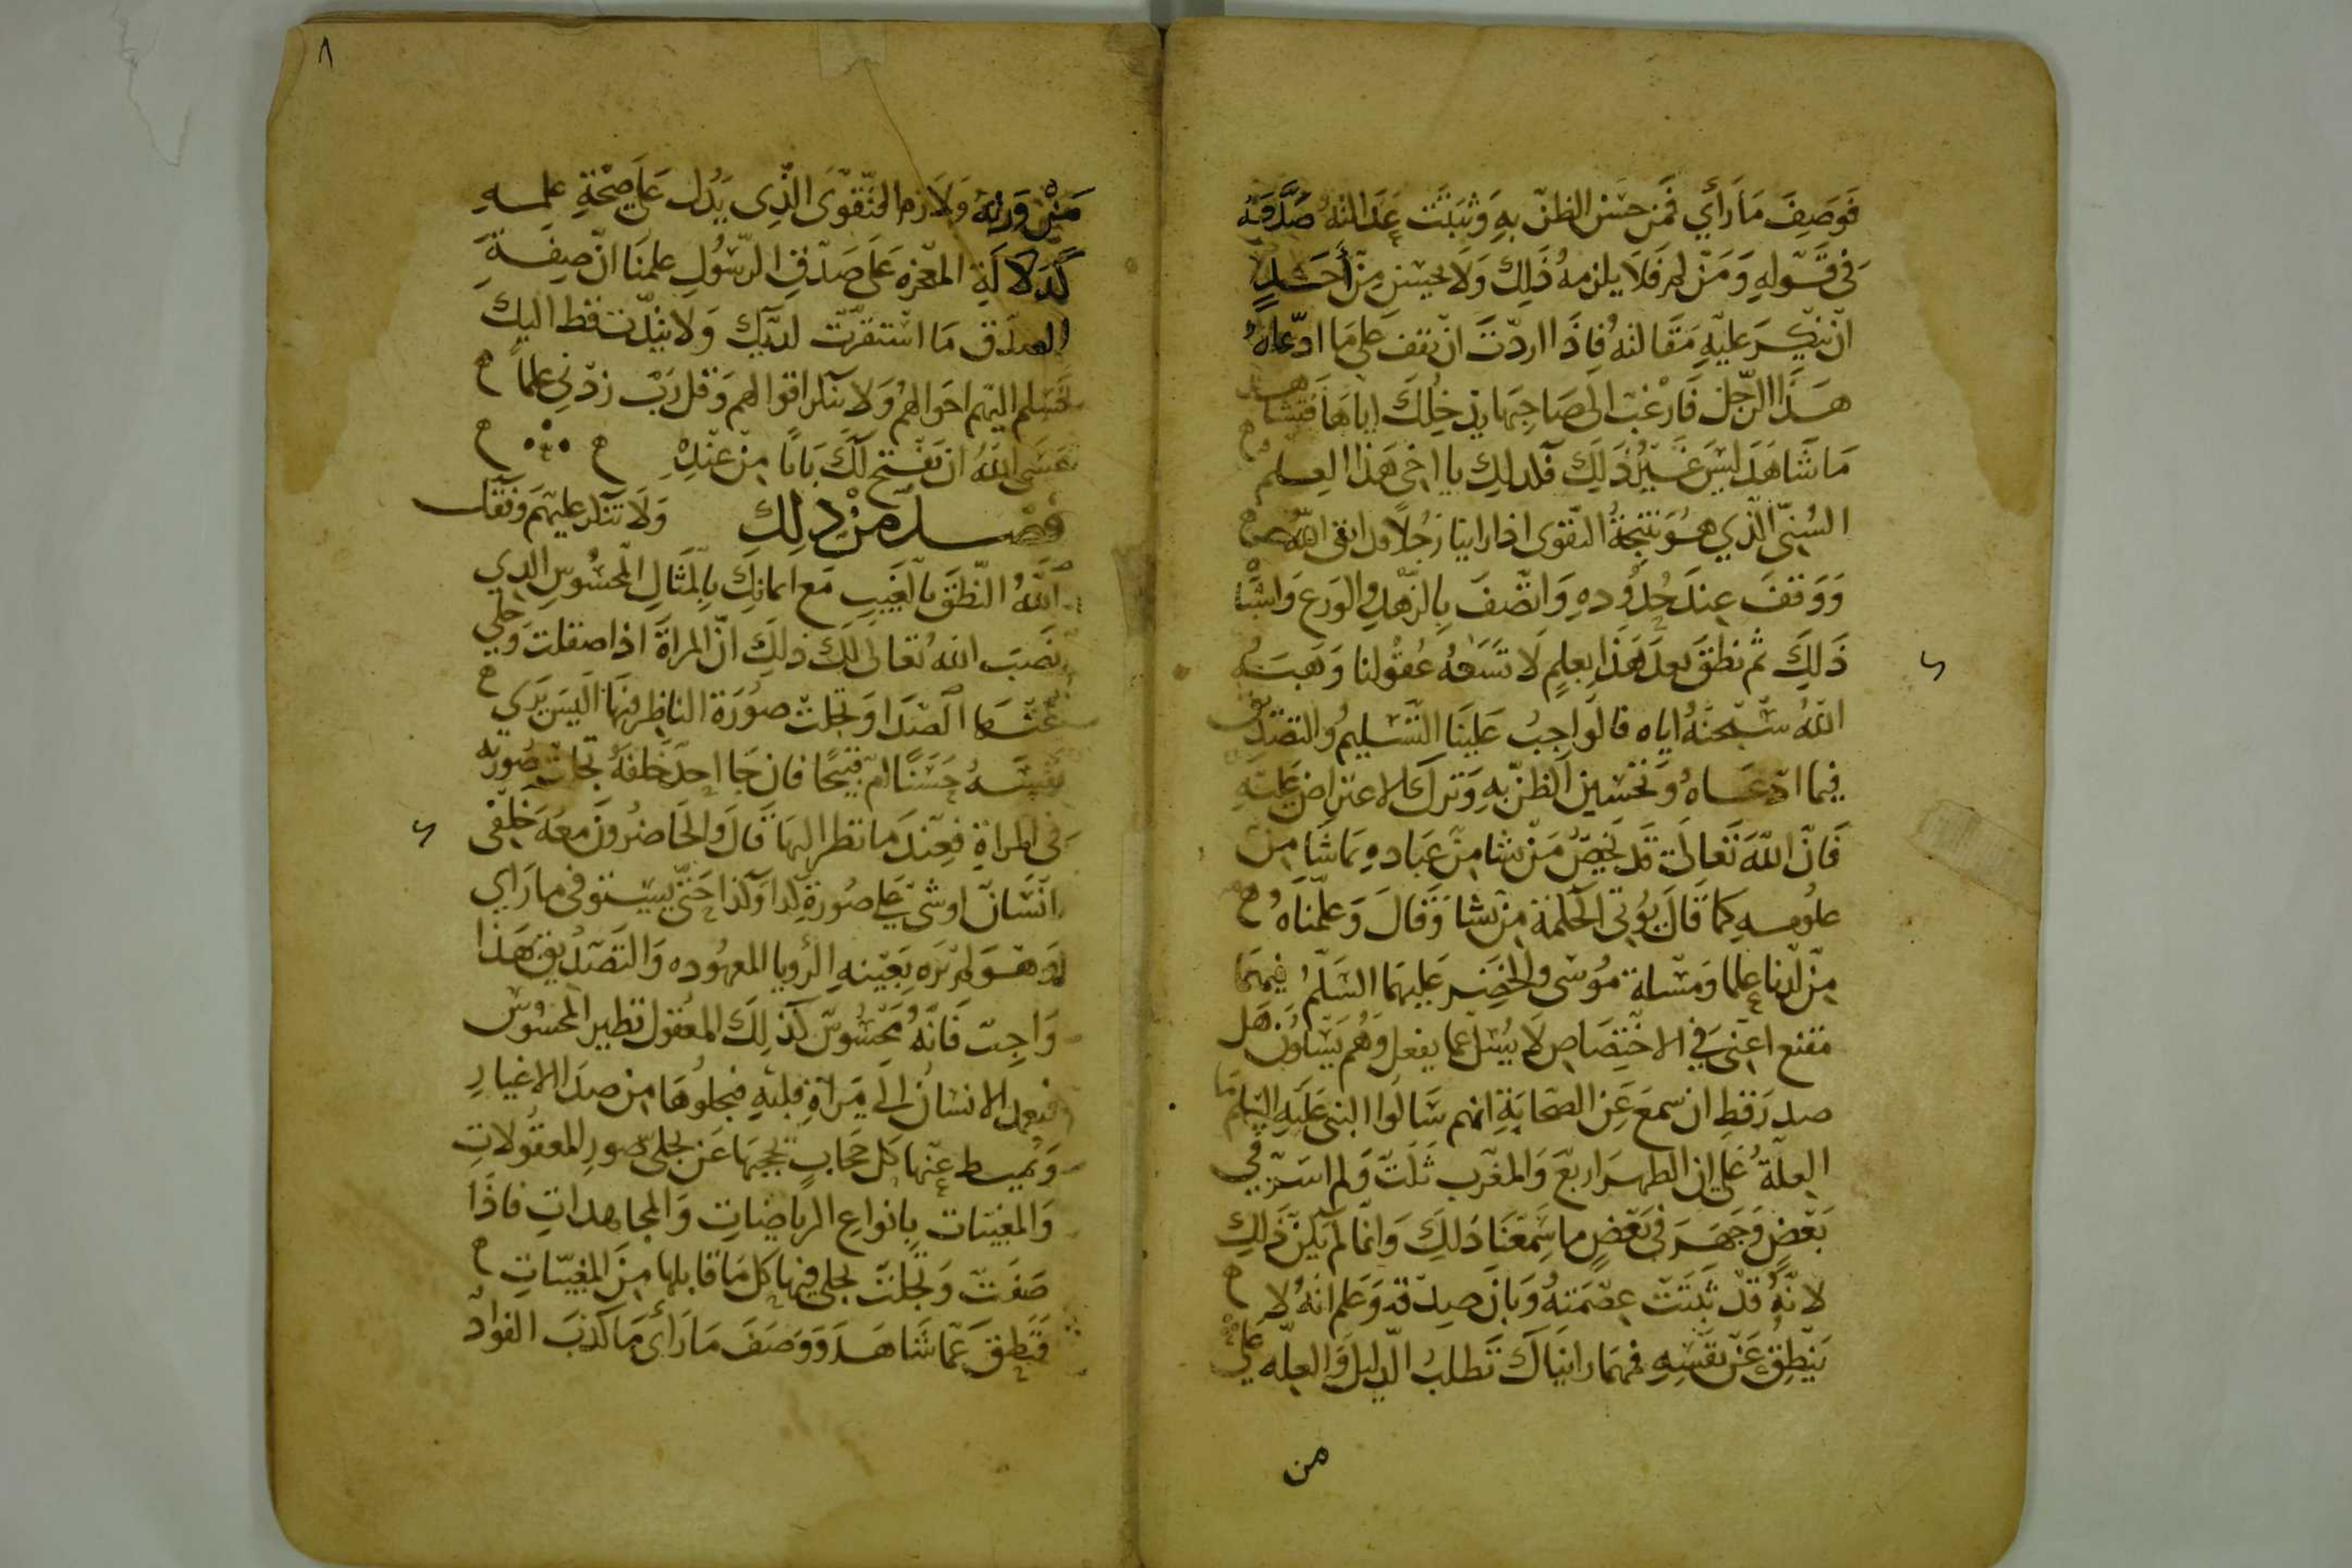 فوصف ما رأي فمن حسن الظن به وثبتت عدالته صدقه
في قوله ومن لم فلا يلزمه ذلك ولا يحسن من أحد
ان ينكر عليه مقالته فاذا اردت ان تقف على ما ادعاه
هذا الرجل فارغب الى صاحبها يدخلك اياها فتشاهد
ما شاهد ليس غير ذلك فكذلك يا اخي هذا العلم
السني الذي هو نتيجة التقوى اذا راينا رجلا قد اتقى الله
ووقف عند حدوده واتصف بالزهد والورع واشبا
ذلك ثم نطق بعد هذا بعلم لا تسعه عقولنا وهبه
الله سبحنه اياه فالواجب علينا التسليم والتصديق
فيما ادعاه وتحسين الظن به وترك الاعتراض عليه
فان الله تعالى قد يخص من شا من عباده بما شا من
علومه كما قال يوتي الحكمة من يشا وقال وعلمناه
من لدنا علما ومسلة موسى والخضر عليهما السلم فيهما
مقنع اعني في الاختصاص لا يسل عما يفعل وهم يسالون هل
صدر قط ان سمع عن الصحابة انهم سالوا النبي عليه السلم ما
العلة على ان الظهر اربع والمغرب ثلث ولم اسر في
بعض وجهر في بعض ما سمعنا ذلك وانما لم يكن ذلك
لانه قد ثبتت عصمته وبان صدقه وعلم انه لا
ينطق عن نفسه فمهما رايناك تطلب الدليل والعلة على
من
٨
من ورثه ولازم التقوى الذى يدل على صحة علمه
كدلالة المعجزه على صدق الرسول علمنا ان صفة
الصدق ما استقرت لديك ولا بدت قط اليك
فسلم اليهم احوالهم ولا تنكر اقوالهم وقل رب زدني علما
عسى الله ان يفتح لك بابا من عنده
فصل من ذلك ولا تنكر عليهم وفقك
الله النطق بالغيب مع ايمانك بالمثال المحسوس الذي
نصب الله تعالى لك ذلك ان المراة اذا صقلت وجلي
عنها الصدا وتجلت صورة الناظر فيها اليس يرى
نفسه حسنا ام قبيحا فان جا احد خلفه تجلت صورته
في المراة فعندما نظر اليها قال والحاضرون معه خلفى
انسان او شى على صورة كدا وكذا حتى يستوفى ما راي
وهو لم يره بعينه الرويا المعهوده والتصديق بهذا
واجب فانه محسوس كذلك المعقول نظير المحسوس
فيعمد الانسان الى مراة قلبه فيجلوها من صدا الاغيار
ويميط عنها كل حجاب يحجبها عن تجلى صور المعقولات
والمغيبات بانواع الرياضات والمجاهدات فاذا
صفت وتجلت تجلى فيها كل ما قابلها من المغيبات
فنطق عما شاهد ووصف ما راى ما كذب الفواد